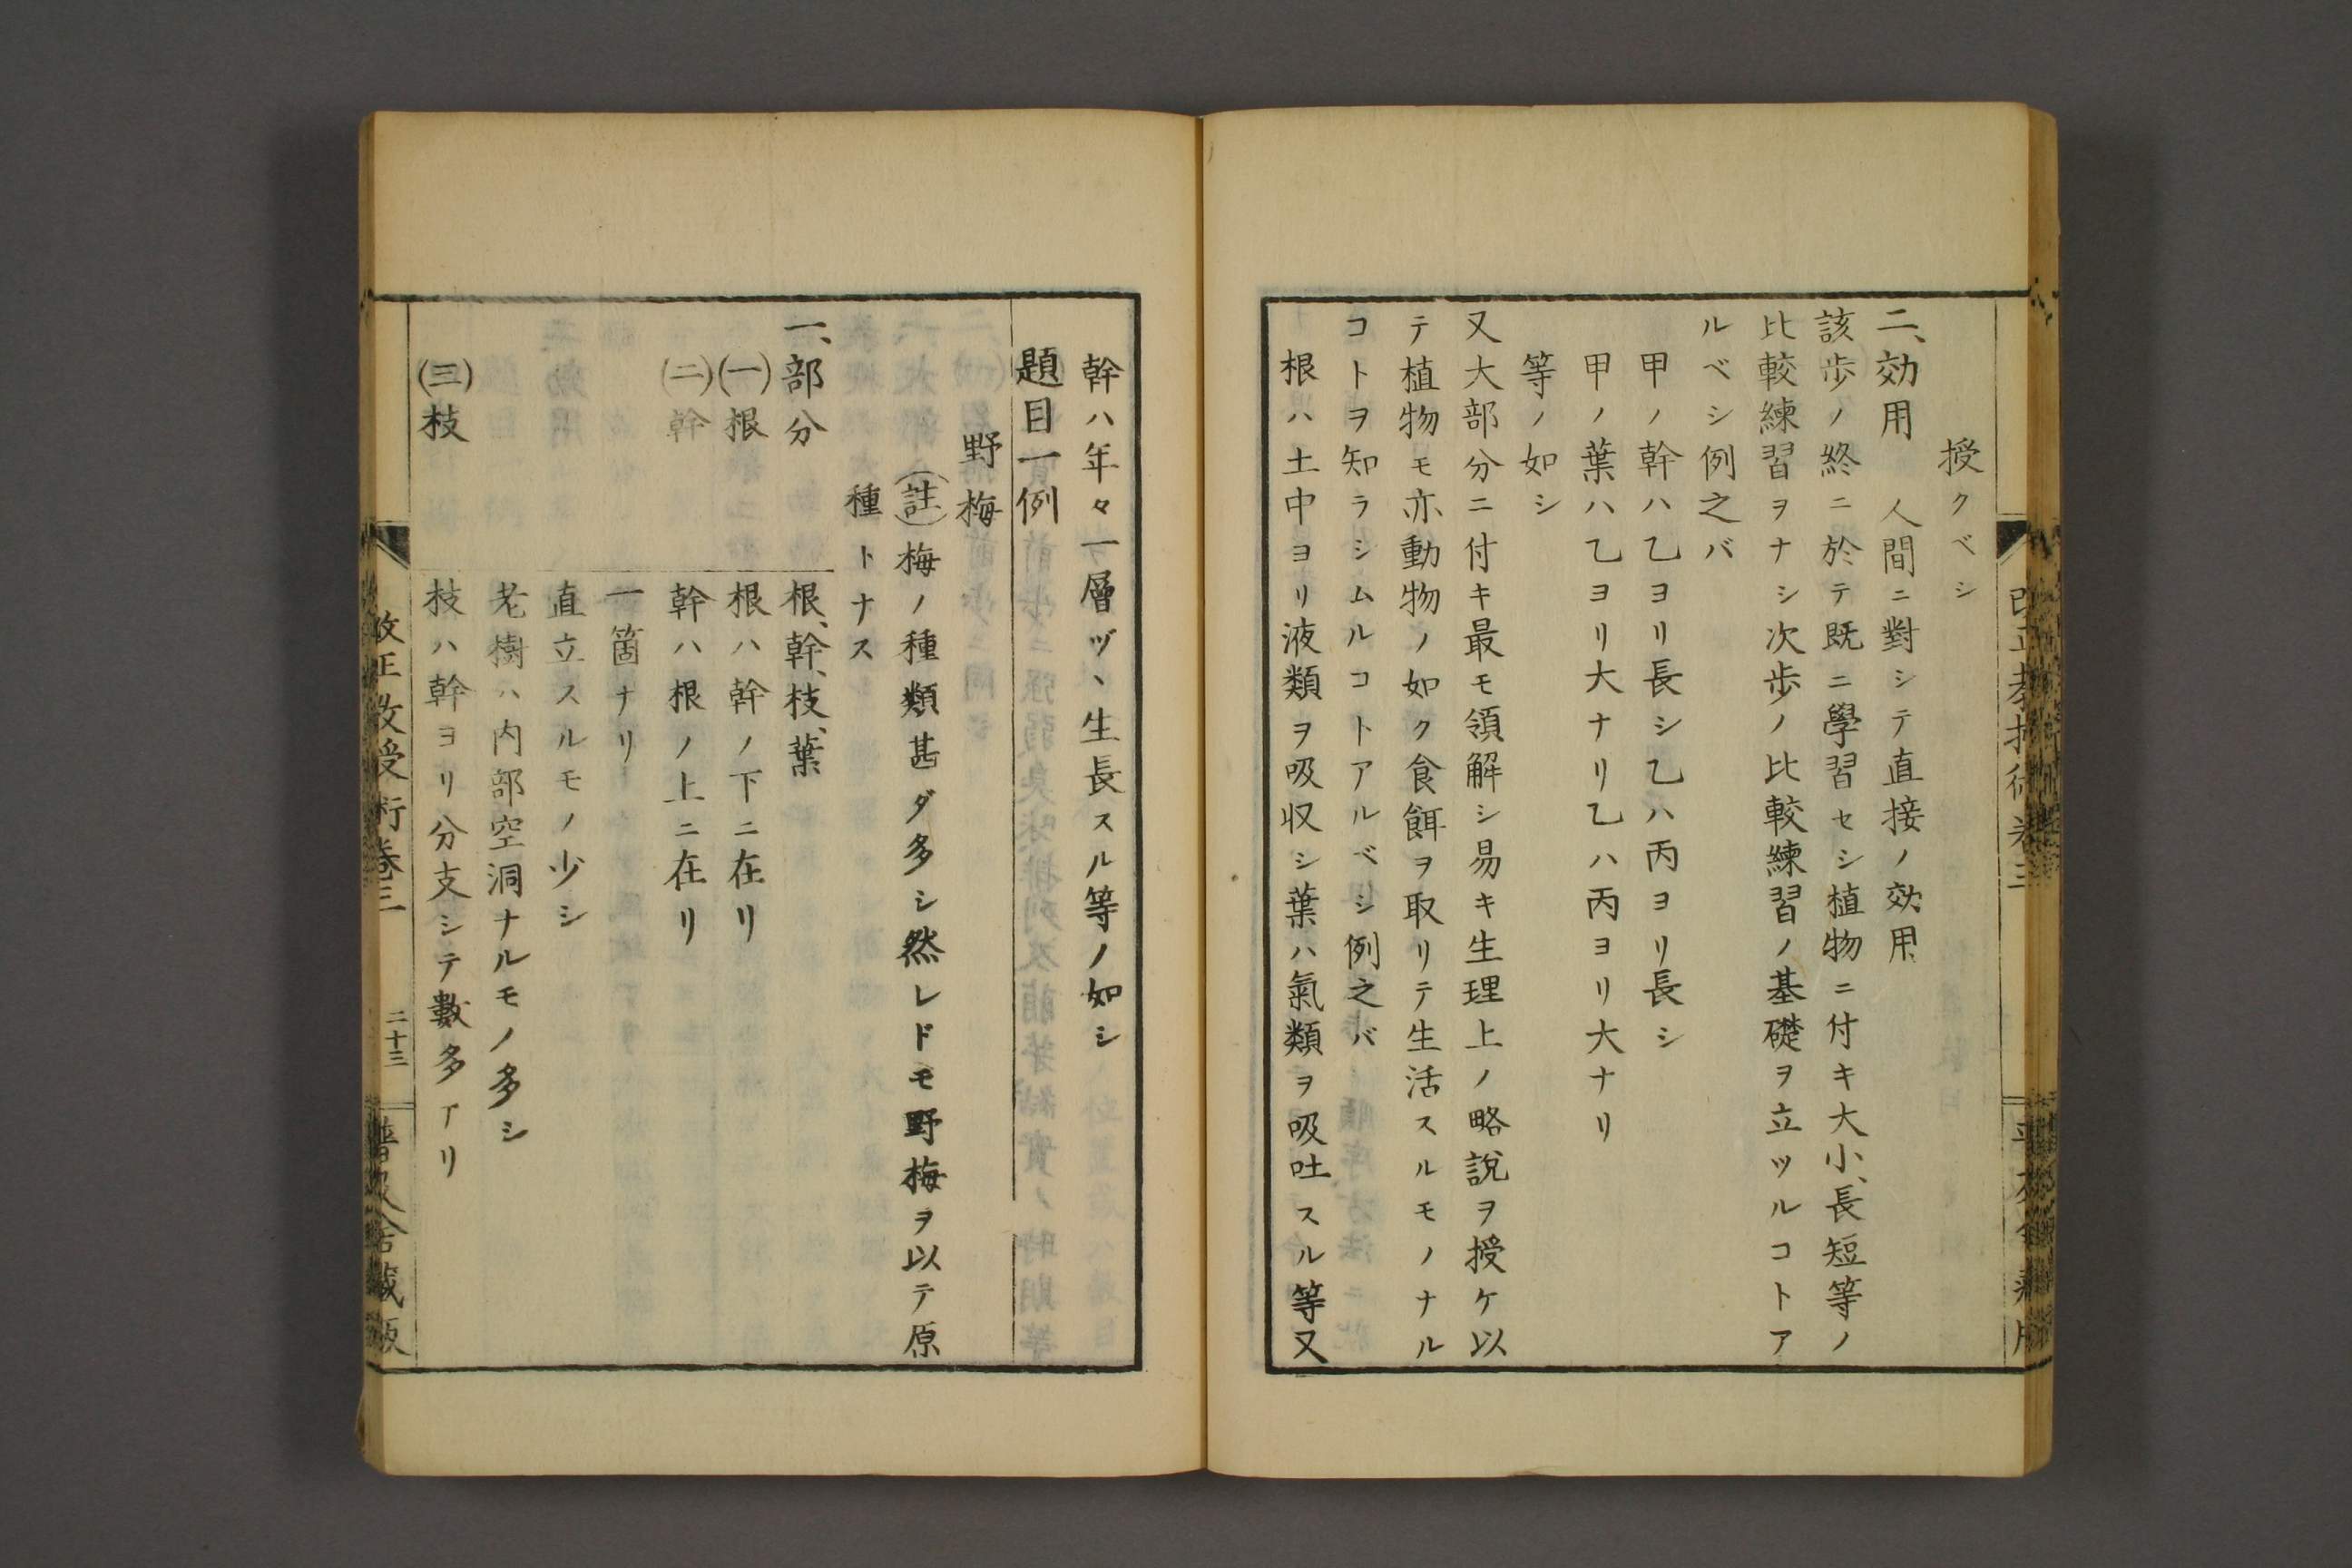 授クベシ
二、効用　人間ニ對シテ直接ノ効用
該歩ノ終ニ於テ既ニ學習セシ植物ニ付キ大小、長短等ノ
比較練習ヲナシ次歩ノ比較練習ノ基礎ヲ立ツルコトア
ルベシ例之バ
甲ノ幹ハ乙ヨリ長シ乙ハ丙ヨリ長シ
甲ノ葉ハ乙ヨリ大ナリ乙ハ丙ヨリ大ナリ
等ノ如シ
又大部分ニ付キ最モ領解シ易キ生理上ノ略說ヲ授ケ以
テ植物モ亦動物ノ如ク食餌ヲ取リテ生活スルモノナル
コトヲ知ラシムルコトアルベシ例之バ
根ハ土中ヨリ液類ヲ吸収シ葉ハ氣類ヲ吸吐スル等又
幹ハ年々一層ヅヽ生長スル等ノ如シ
題目一例
野梅
(註)梅ノ種類甚ダ多シ然レドモ野梅ヲ以テ原
種トナス
一、部分　根、幹、枝、葉
(一)根　根ハ幹ノ下ニ在リ
(二)幹　幹ハ根ノ上ニ在リ
一箇ナリ
直立スルモノ少シ
老樹ハ内部空洞ナルモノ多シ
(三)枝　枝ハ幹ヨリ分支シテ數多アリ
改正教授術卷三　二十三　普及舍藏版